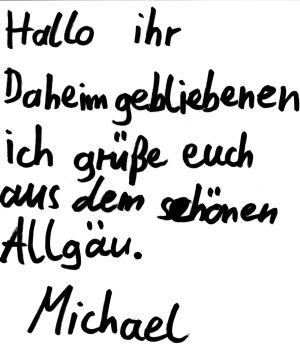 Hallo ihr
Daheimgebliebenen
ich grüße euch
aus dem schönen
Allgäu.
Michael